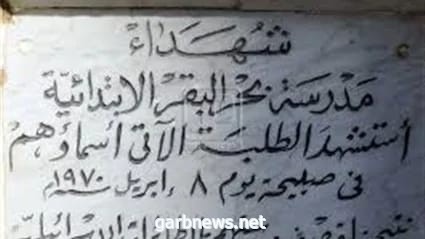 شهداء
مدرسة بحر البقر الابتدائية
أستشهد الطلبة الآتى أسماؤهم
فى صبيحة يوم ٨ إبريل سنة ١٩٧٠
garbnews.net